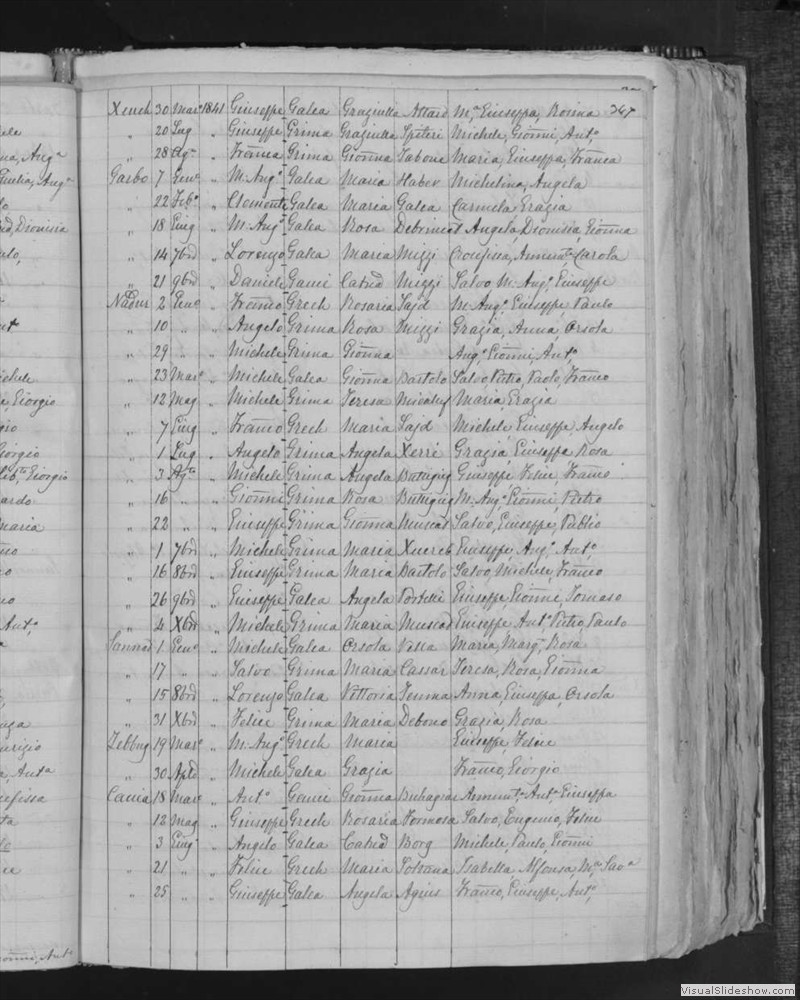 Xeuch 30 Mar° 1841 Giuseppe Galea Graziulla Attard Mª Giuseppa, Rosina 367
" 20 Lug " Giuseppe Grima Graziulla Spiteri Michele, Gionni, Ant°
" 28 Ag° " Franco Grima Gionna Tabone Maria, Giuseppa, Franca
Garbo 7 Gen° " M. Ang° Galea Maria Haber Michelina, Angela
" 22 Feb° " Clemente Galea Maria Galea Carmela, Grazia
" 18 Giug " M. Ang° Galea Rosa Debrincat Angela, Dionisia, Gionna
" 14 7bre " Lorenzo Galea Maria Mizzi Crocifissa, Carola
" 21 9bre " Daniele Gauci Mizzi Salvo, M. Ang° Giuseppe
Nadur 2 Gen° " Franco Grech Rosaria Said M. Ang° Giuseppe, Paulo
" 10 " " Angelo Grima Rosa Mizzi Grazia, Anna, Orsola
" 29 " " Michele Grima Gionna Ang° Gionni, Ant°
" 23 Mar° " Michele Galea Gionna Bartolo Salvo, Pietro, Paolo, Franco
" 12 Mag " Michele Grima Teresa Micalef Maria, Grazia
" 7 Giug " Franco Grech Maria Said Michele, Giuseppe, Angelo
" 1 Lug " Angelo Grima Angela Xerri Grazia, Giuseppa, Rosa
" 3 Ag° " Michele Grima Angela Buttigieg Giuseppe, Felice, Franco
" 16 " " Gionni Grima Rosa Buttigieg M. Ang° Gionni, Pietro
" 22 " " Giuseppe Grima Gionna Muscat Salvo, Giuseppe, Publio
" 1 7bre " Michele Grima Maria Xuereb Giuseppe, Ang° Ant°
" 16 8bre " Giuseppe Grima Maria Bartolo Salvo, Michele, Franco
" 26 9bre " Giuseppe Galea Angela Portelli Giuseppe, Gionni, Tomaso
" 4 Xbre " Michele Grima Maria Muscat Giuseppe Ant° Pietro, Paulo
Sannat 1 Gen° " Michele Galea Orsola Vella Maria, Margª, Rosa
" 17 " " Salvo Grima Maria Cassar Teresa, Rosa, Gionna
" 15 8bre " Lorenzo Galea Vittoria Anna, Giuseppa, Orsola
" 31 Xbre " Felice Grima Maria Debono Grazia, Rosa
Zebbug 19 Mar° " M. Ang° Grech Maria Giuseppe, Felice
" 30 Aple " Michele Galea Grazia Franco, Giorgio
18 Mar° " Ant° Gauci Gionna Buhagiar Antª Giuseppa
" 12 Mag " Giuseppe Grech Rosaria Formosa Salvo, Eugenio, Felice
" 3 Giug " Angelo Galea Borg Michele, Paulo, Gionni
" 21 " " Felice Grech Maria Isabella, Alfonsa, Mª
" 25 " " Giuseppe Galea Angela Agius Franco, Giuseppe, Ant°
VisualSlideshow.com